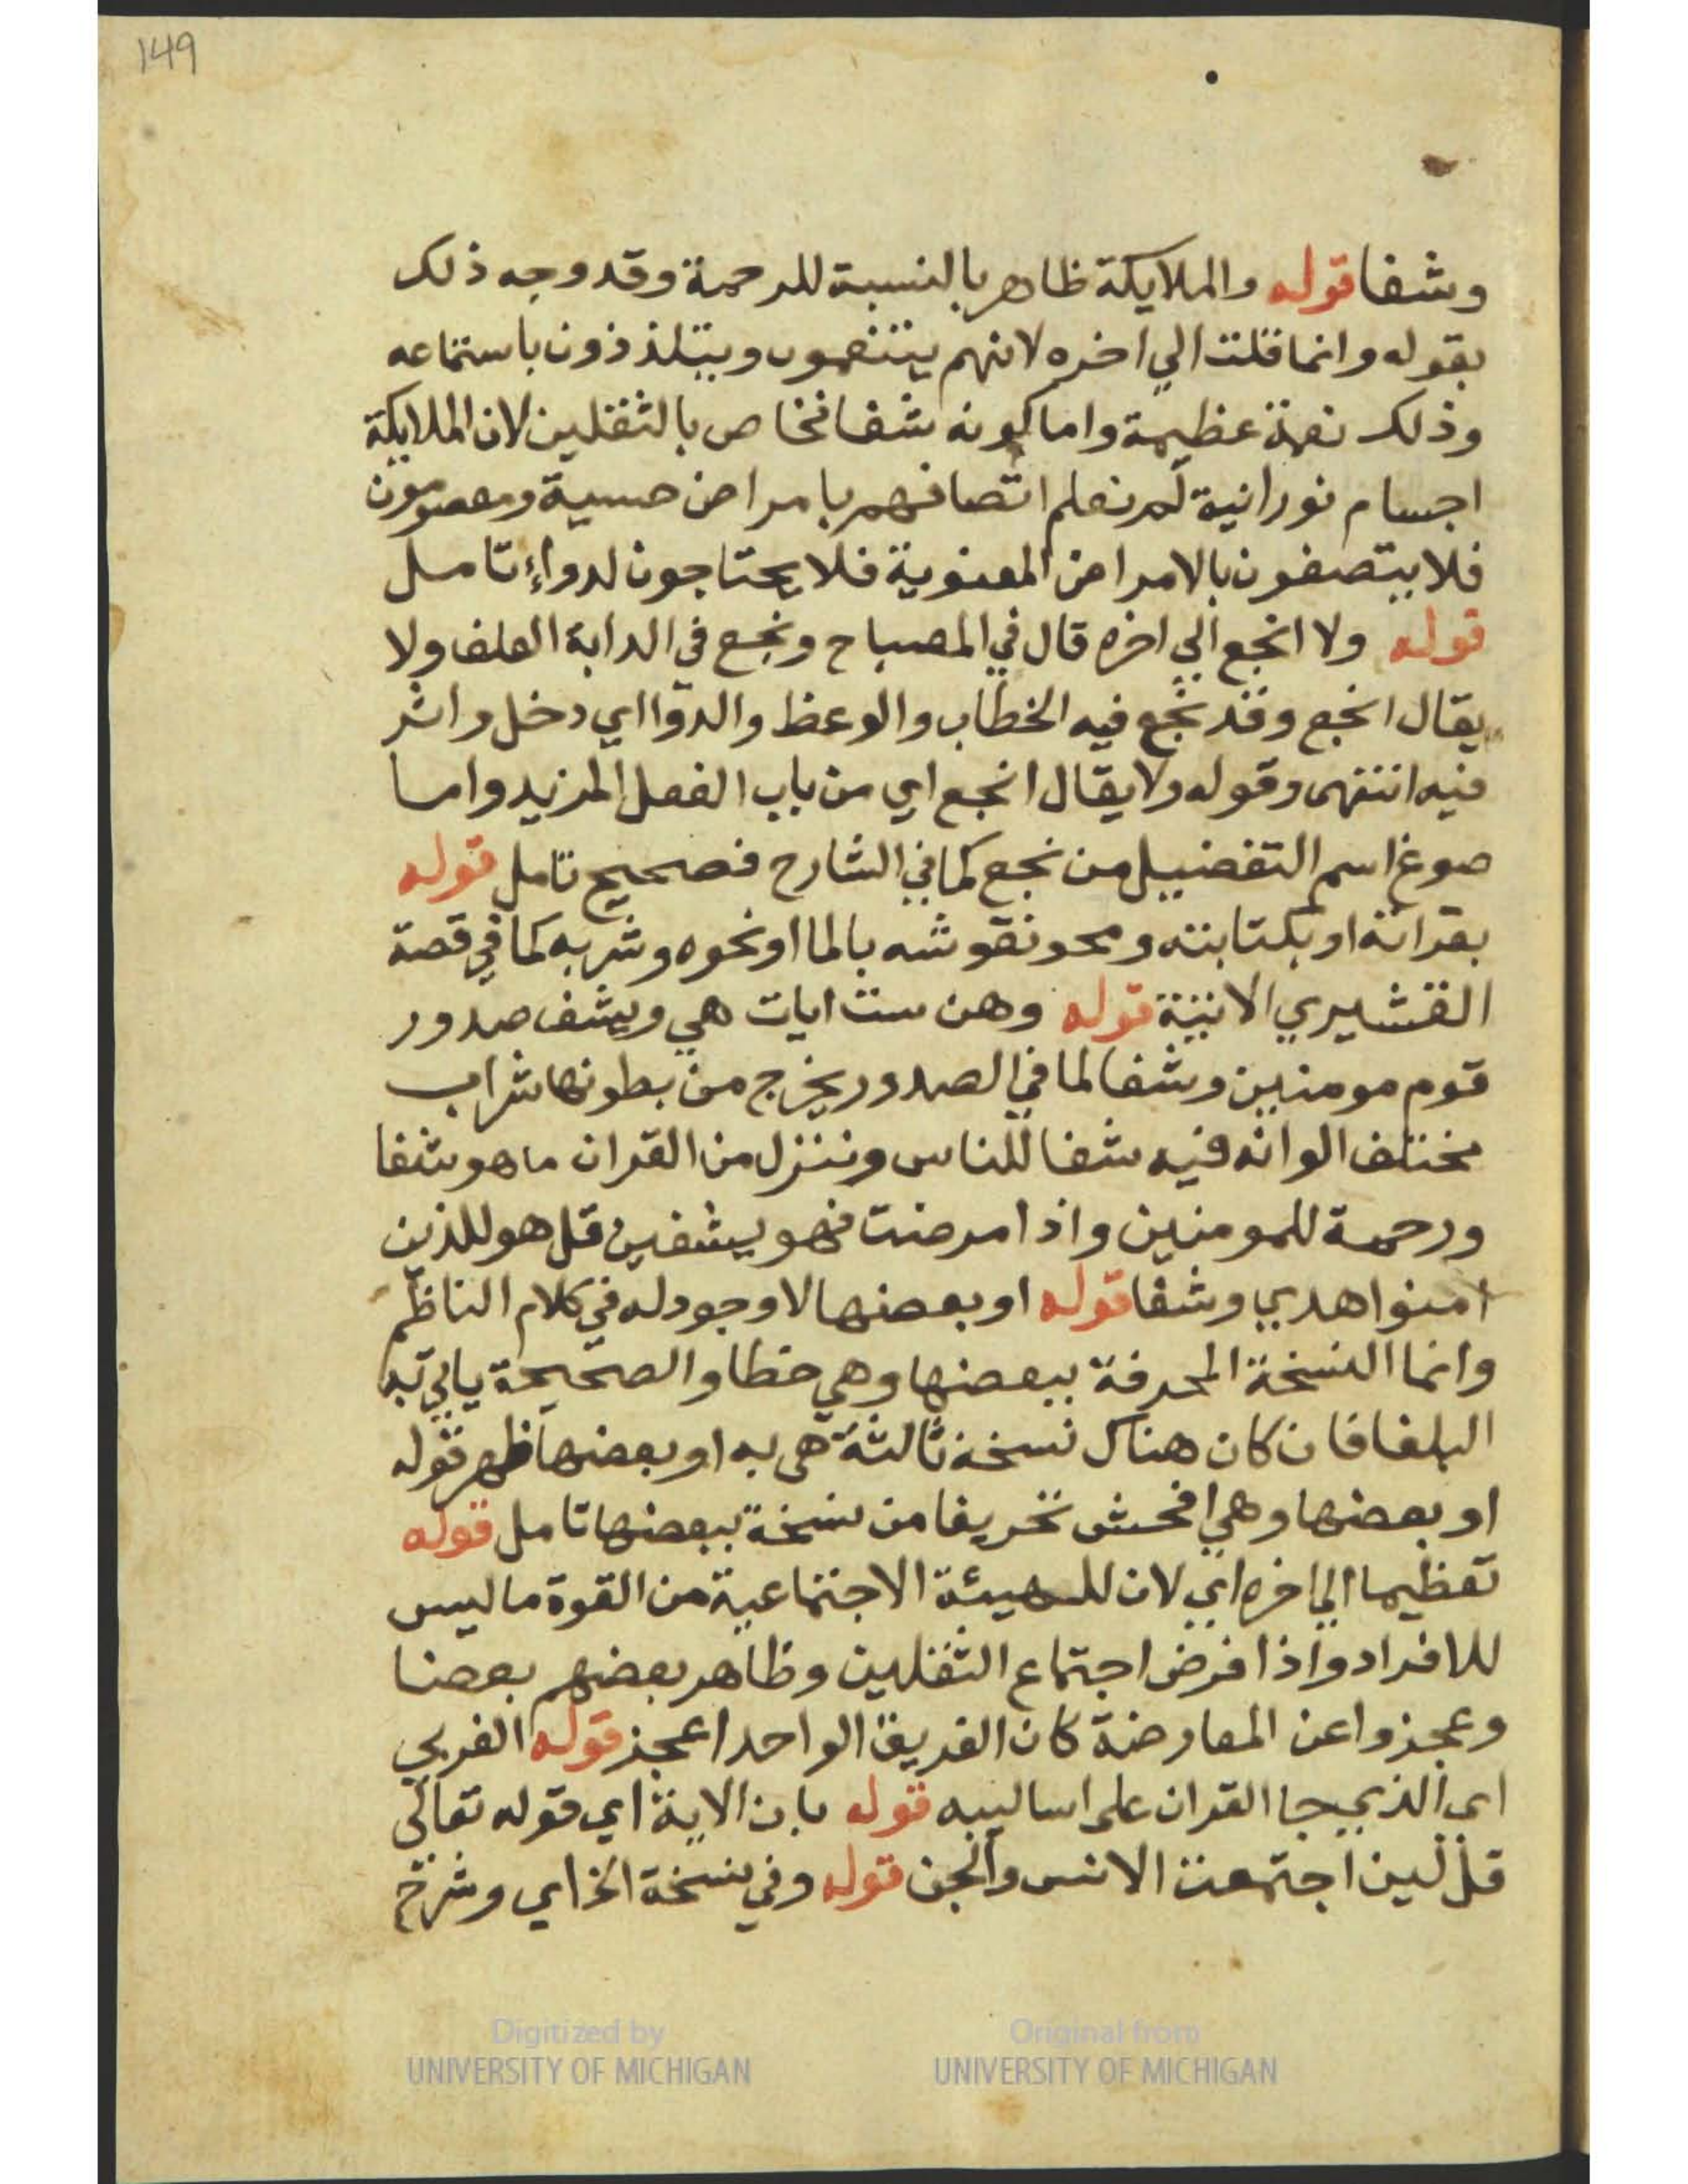 149
وشفا قوله والملايكة ظاهر بالنسبة للرحمة وقد وجه ذلك
بقوله وانما قلت الي اخره لانهم يتنعمون ويتلذذون باستماعه
وذلك نعمة عظيمة واما كونه شفا فخاص بالثقلين لان الملايكة
اجسام نورانية لم نعلم اتصافهم بامراض حسية ومعصومون
فلا يتصفون بالامراض المعنوية فلا يحتاجون لدواء تامل
قوله ولا انجع الي اخره قال في المصباح ونجع في الدابة العلف ولا
يقال انجع وقد نجع فيه الخطاب والوعظ والدوا اي دخل واثر
فيه انتهى وقوله ولا يقال انجع اي من باب الفعل المزيد واما
صوغ اسم التفضيل من نجع كما في الشارح فصحيح تامل قوله
بقرائة او بكتابته ومحو نقوشه بالما او نحوه وشربه كما في قصة
القشيري الاتية قوله وهن ست ايات هي ويشف صدور
قوم مومنين وشفا لما في الصدور يخرج من بطونها شراب
مختلف الوانه فيه شفا للناس وننزل من القران ما هو شفا
ورحمة للمومنين واذا مرضت فهو يشفين قل هو للذين
امنوا هدي وشفا قوله او بعضها لا وجود له في كلام الناظم
وانما النسخة المحرفة ببعضها وهي خطا والصحيحة ياتي به
البلغا فان كان هناك نسخة ثالثة هي به او بعضها ظهر قوله
او بعضها وهي افحش تحريفا من نسخة ببعضها تامل قوله
تعظيما الي اخره اي لان للهيئة الاجتماعية من القوة ما ليس
للافراد واذا فرض اجتماع الثقلين وظاهر بعضهم بعضا
وعجزوا عن المعارضة كان الفريق الواحد اعجز قوله العربي
اي الذي جا القران على اساليبه قوله بان الاية اي قوله تعالي
قل لين اجتمعت الانس والجن قوله وفي نسخة الخ اي وشرح
Digitized by
UNIVERSITY OF MICHIGAN
Original from
UNIVERSITY OF MICHIGAN